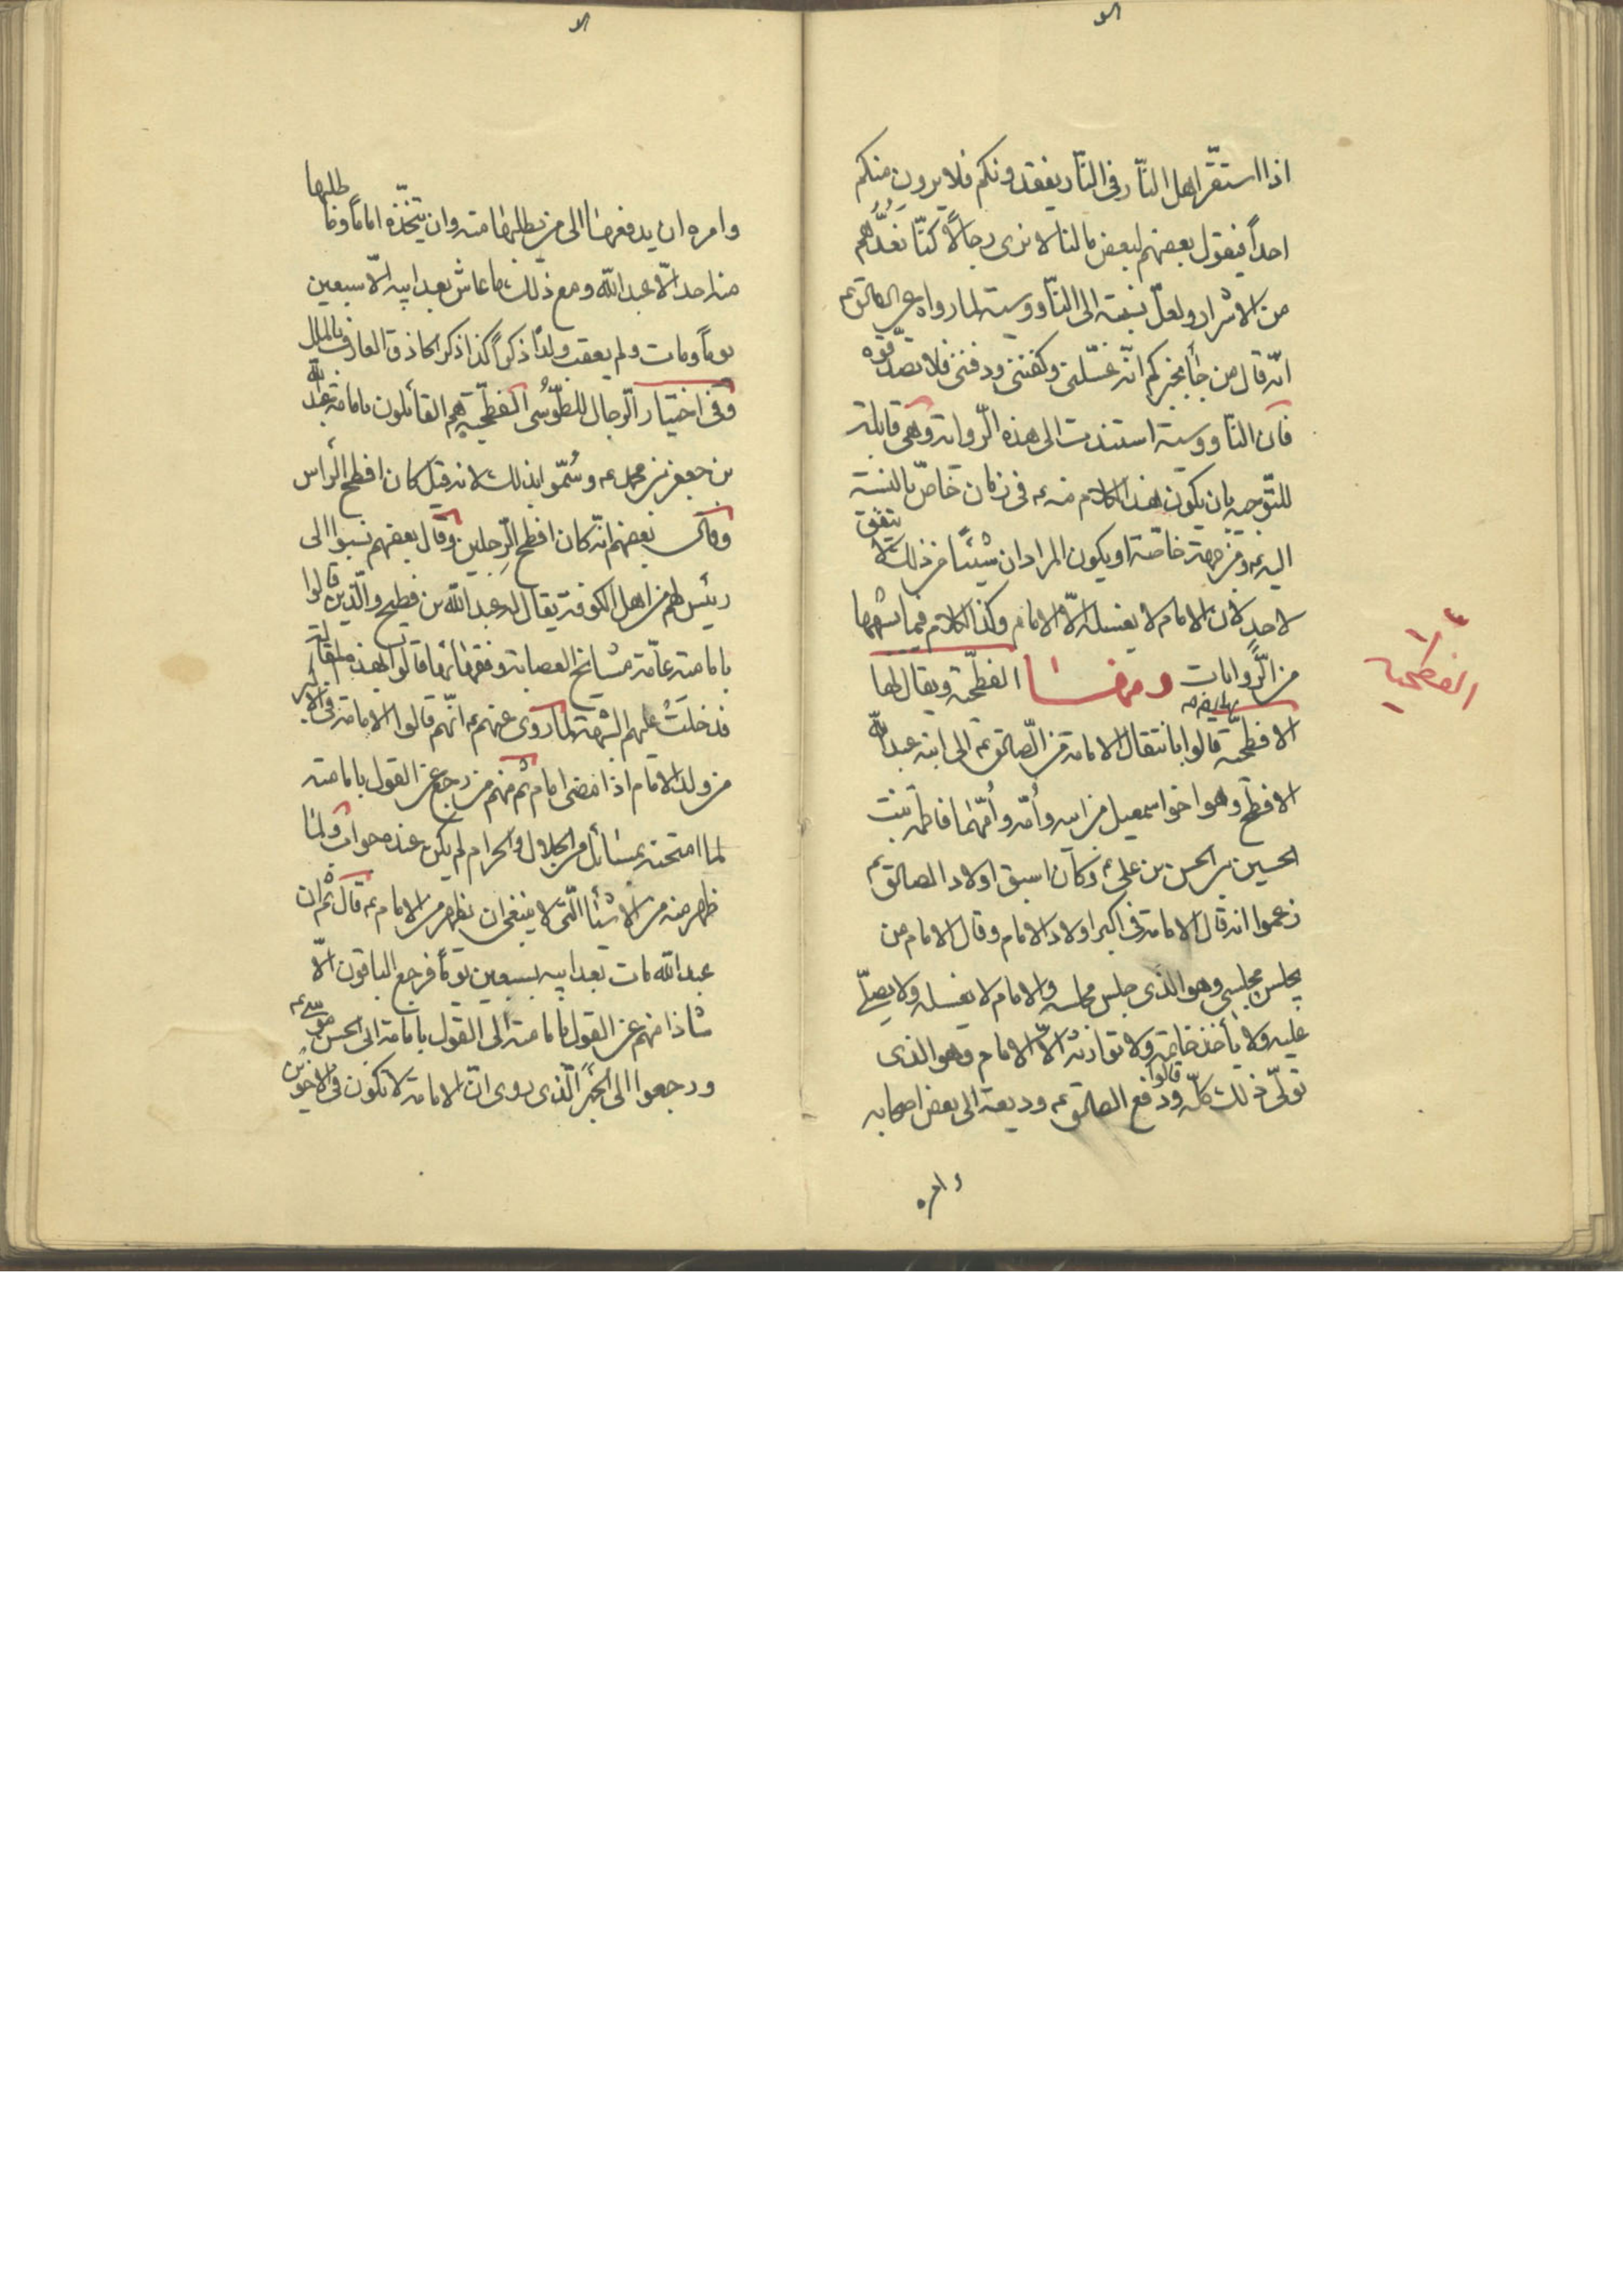 اذا استقّر اهل النّار فى النّار يفقدونكم فلا يرون منكم
احداً فيقول بعضهم لبعض مالنا لا نرى رجالاً كنّا نعُدّهُم
من الاشرار ولعلّ نسبته الى النّاووسيّة لما رواه عن الصادق ع
انّه قال من جأ يخبركم انّه غسّلنى وكفننى ودفننى فلا تصدّقوه
فان النّاووسيّة استندت الى هذه الرّواية وهى قابلة
للتّوجيه بان يكون هذا الكلام منه ع فى زمان خاصّ بالنسبة
اليه ع ومن جهة خاصّة او يكون المراد ان شيئاً من ذلك لا يتفق
لاحدٍ لان الامام لا يغسله الّا الامام وكذا الكلام فيما شابهها
من الرّوايات ومنها الفطحيّة ويقال لها
الفطحية
الافطحيّة قالوا بانتقال الامامة من الصّادق ع الى ابنه عبد اللّه
الافطح وهو اخو اسمعيل من ابيه وأمّه وأمّهما فاطمة بنت
الحسين بن الحسن بن على ع وكان اسبق اولاد الصادق ع
زعموا انه قال الامامة فى اكبر اولاد الامام وقال الامام من
يجلس مجلسى وهو الّذى جلس مجلسه والامام لا يغسله ولا يصلّى
عليه ولا يأخذ خاتمه ولا يوارثه الّا الامام وهو الذى
تولّى ذلك كلّه قالوا ودفع الصادق ع وديعة الى بعض اصحابه
وامره
وامره ان يدفعها الى من يطلبها منه وان يتّخذه اماماً وما طلبها
منه احد الّا عبد اللّه ومع ذلك ما عاش بعد ابيه الّا سبعين
يوماً ومات ولم يعقب ولداً ذكراً كذا ذكر الحاذق العارف بالملل
وفى اختيار الرّجال للطّوُسى الفطحيّة هم القائلون بامامة عبد اللّه
بن جعفر بن محمد ع وسُمّوا بذلك لانه قيل كان افطح الرأس
وقال بعضهم انّه كان افطح الرِجلين وقال بعضهم نسبوا الى
رئيس لهم من اهل الكوفة يقال له عبد اللّه بن فطيح والّذين قالوا
بامامته عامّة مشايخ العصابة وفقهائها قالوا بهذه المقالة
فدخلَتْ عليهم الشبهة لما روى عنهم ع انّهم قالوا الامامة فى الاكبر
من ولد الامام اذا مضى امام ثم منهم من رجع عن القول بامامته
لما امتحنه بمسائل من الحلال والحرام لم يكن عنده جواب ولما
ظهر منه من الاشيأ الّتى لا ينبغى ان يظهر من الامام ع قال ثم ان
عبد اللّه مات بعد ابيه بسبعين يوماً فرجع الباقون الّا
شاذا منهم عن القول بامامته الى القول بامامة ابى الحسن موسى ع
ورجعوا الى الخبر الّذى روى انّ الامامة لا تكون فى الاخوين